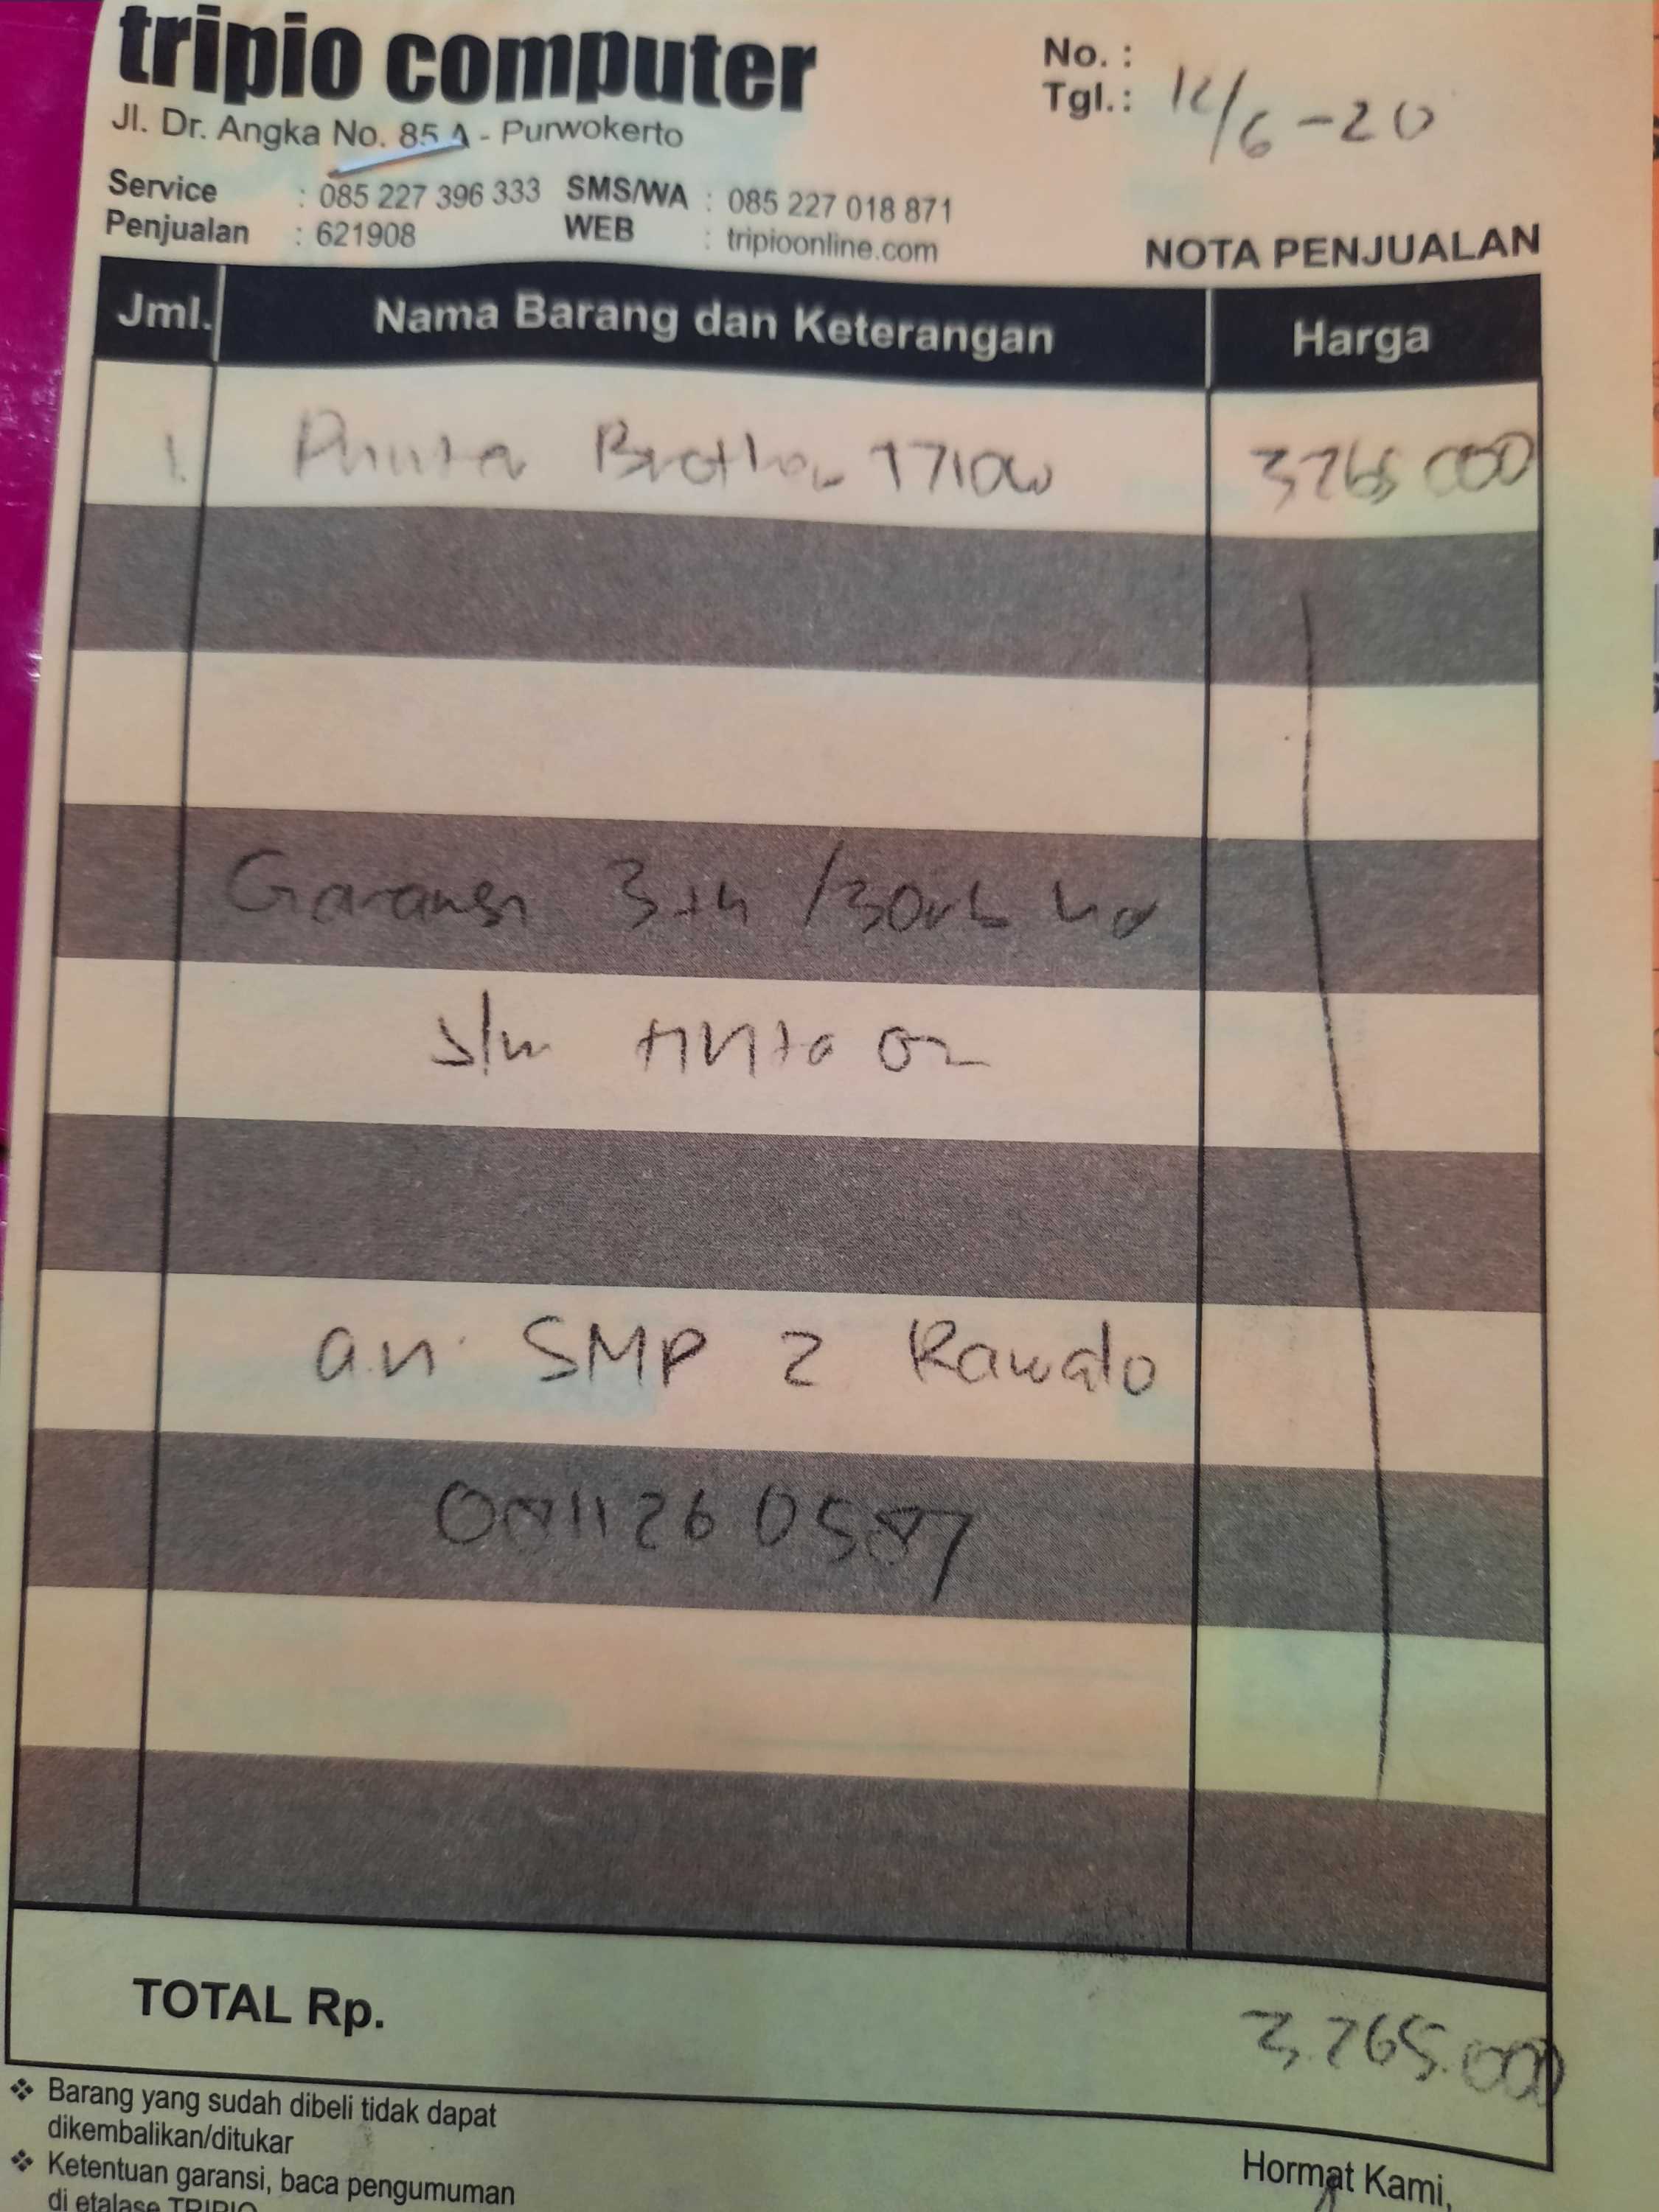 tripio computer
Jl. Dr. Angka No. 85 A - Purwokerto
No. :
Tgl.: 12/6-20
Service : 085 227 396 333 SMS/WA : 085 227 018 871
Penjualan : 621908 WEB : tripioonline.com
NOTA PENJUALAN
Jml. Nama Barang dan Keterangan Harga
1. Printer Brother T710W 3.265.000
Garansi 3 th /30rb
s/n tinta
a.n. SMP 2 Rawalo
TOTAL Rp. 3.265.000
❖ Barang yang sudah dibeli tidak dapat
dikembalikan/ditukar
❖ Ketentuan garansi, baca pengumuman
di etalase TRIPIO
Hormat Kami,